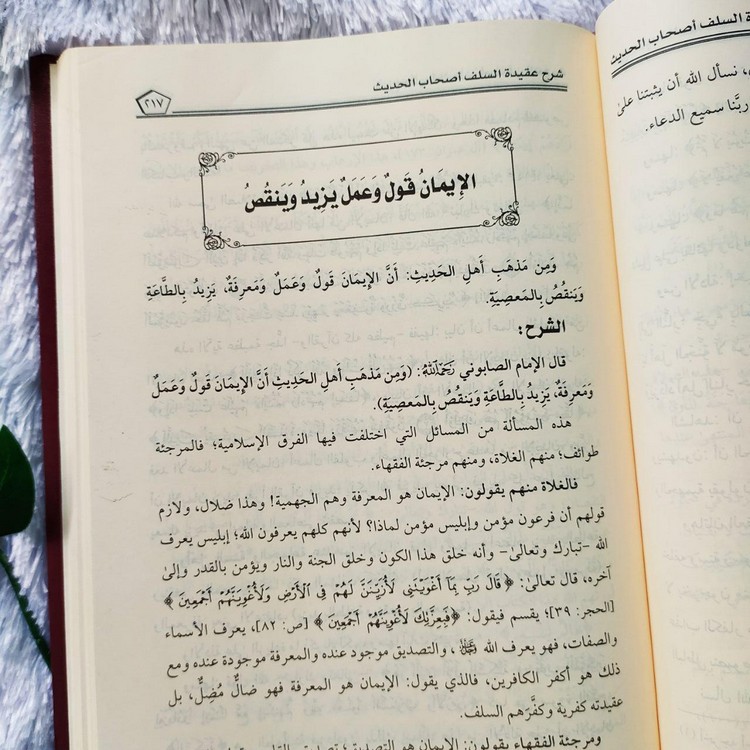 شرح عقيدة السلف أصحاب الحديث
٢١٧
الإِيمَانُ قَولٌ وَعَمَلٌ يَزِيدُ وَيَنقُصُ
وَمِن مَذهَبِ أَهلِ الحَدِيثِ: أَنَّ الإِيمَانَ قَولٌ وَعَمَلٌ وَمَعرِفَةٌ، يَزِيدُ بِالطَّاعَةِ
وَيَنقُصُ بِالمَعصِيَةِ.
الشرح:
قال الإمام الصابوني رَحِمَهُ اللهُ: (وَمِن مَذهَبِ أَهلِ الحَدِيثِ أَنَّ الإِيمَانَ قَولٌ وَعَمَلٌ
وَمَعرِفَةٌ، يَزِيدُ بِالطَّاعَةِ وَيَنقُصُ بِالمَعصِيَةِ).
هذه المسألة من المسائل التي اختلفت فيها الفرق الإسلامية؛ فالمرجئة
طوائف؛ منهم الغلاة، ومنهم مرجئة الفقهاء.
فالغلاة منهم يقولون: الإيمان هو المعرفة وهم الجهمية! وهذا ضلال، ولازم
قولهم أن فرعون مؤمن وإبليس مؤمن لماذا؟ لأنهم كلهم يعرفون الله؛ إبليس يعرف
الله -تبارك وتعالى- وأنه خلق هذا الكون وخلق الجنة والنار ويؤمن بالقدر وإلى
آخره، قال تعالى: ﴿قَالَ رَبِّ بِمَآ أَغْوَيْتَنِى لَأُزَيِّنَنَّ لَهُمْ فِى ٱلْأَرْضِ وَلَأُغْوِيَنَّهُمْ أَجْمَعِينَ﴾
[الحجر: ٣٩]؛ يقسم فيقول: ﴿فَبِعِزَّتِكَ لَأُغْوِيَنَّهُمْ أَجْمَعِينَ﴾ [ص: ٨٢]، يعرف الأسماء
والصفات، فهو يعرف الله ﷻ، والتصديق موجود عنده والمعرفة موجودة عنده ومع
ذلك هو أكفر الكافرين، فالذي يقول: الإيمان هو المعرفة فهو ضالٌّ مُضلٌّ، بل
عقيدته كفرية وكفَّرَهم السلف.
ومرجئة الفقهاء يقولون: الإيمان هو التصديق؛ تصديق
ة السلف أصحاب الحديث
، نسأل الله أن يثبتنا على
ربَّنا سميع الدعاء.